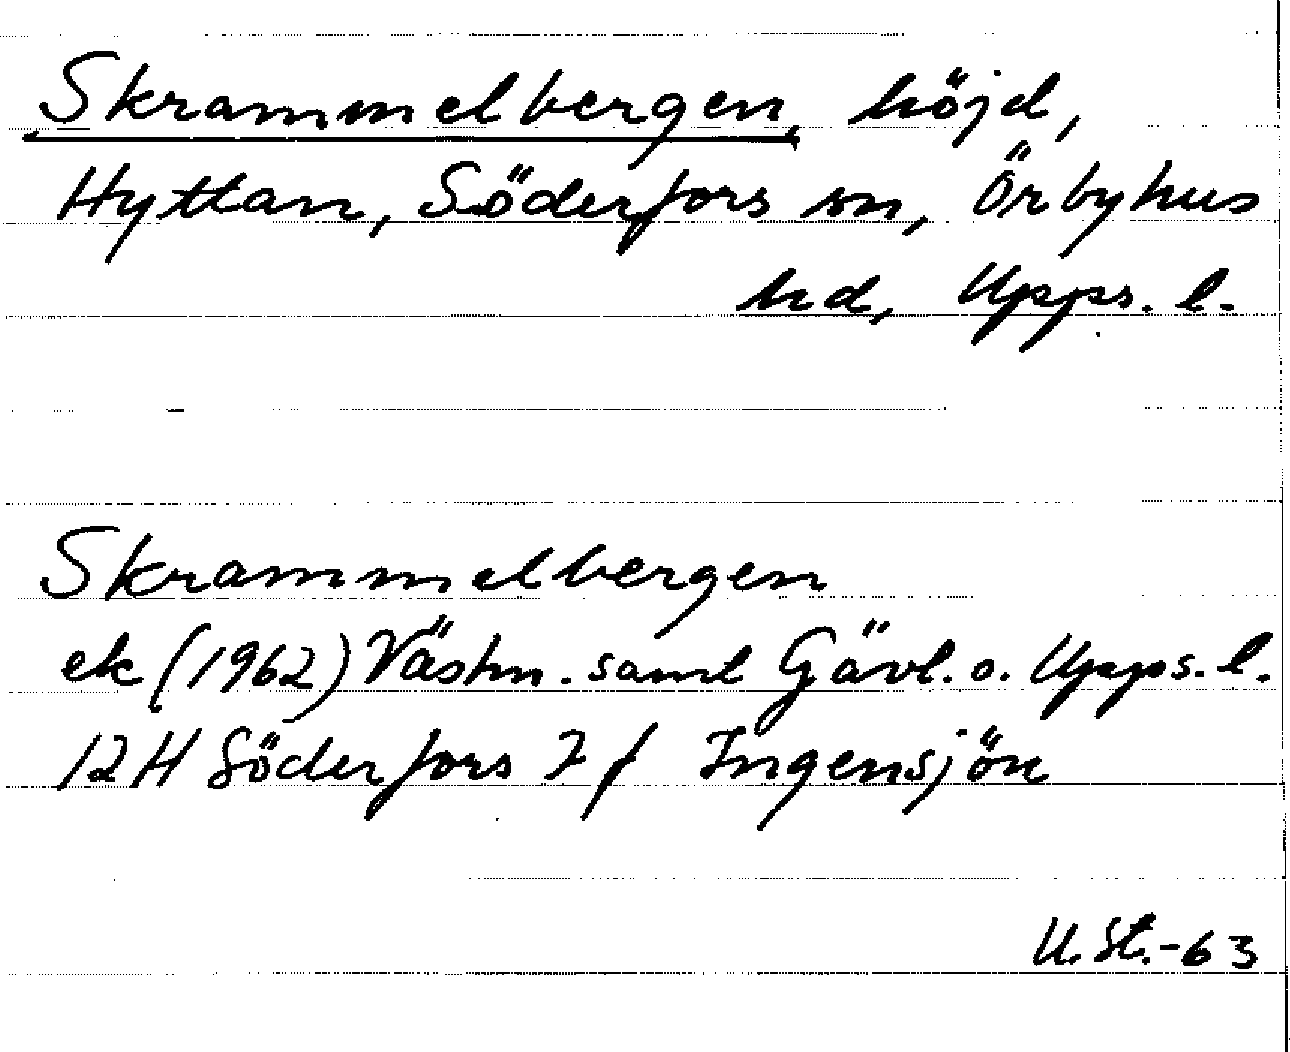 Skrammelbergen, höjd,
Hyttan, Söderfors sn, Örbyhus
hd, Upps. l.
Skrammelbergen
ek (1962) Västm. saml Gävl. o. Upps. l.
12H Söderfors 7f Ingensjön
U. St.-63